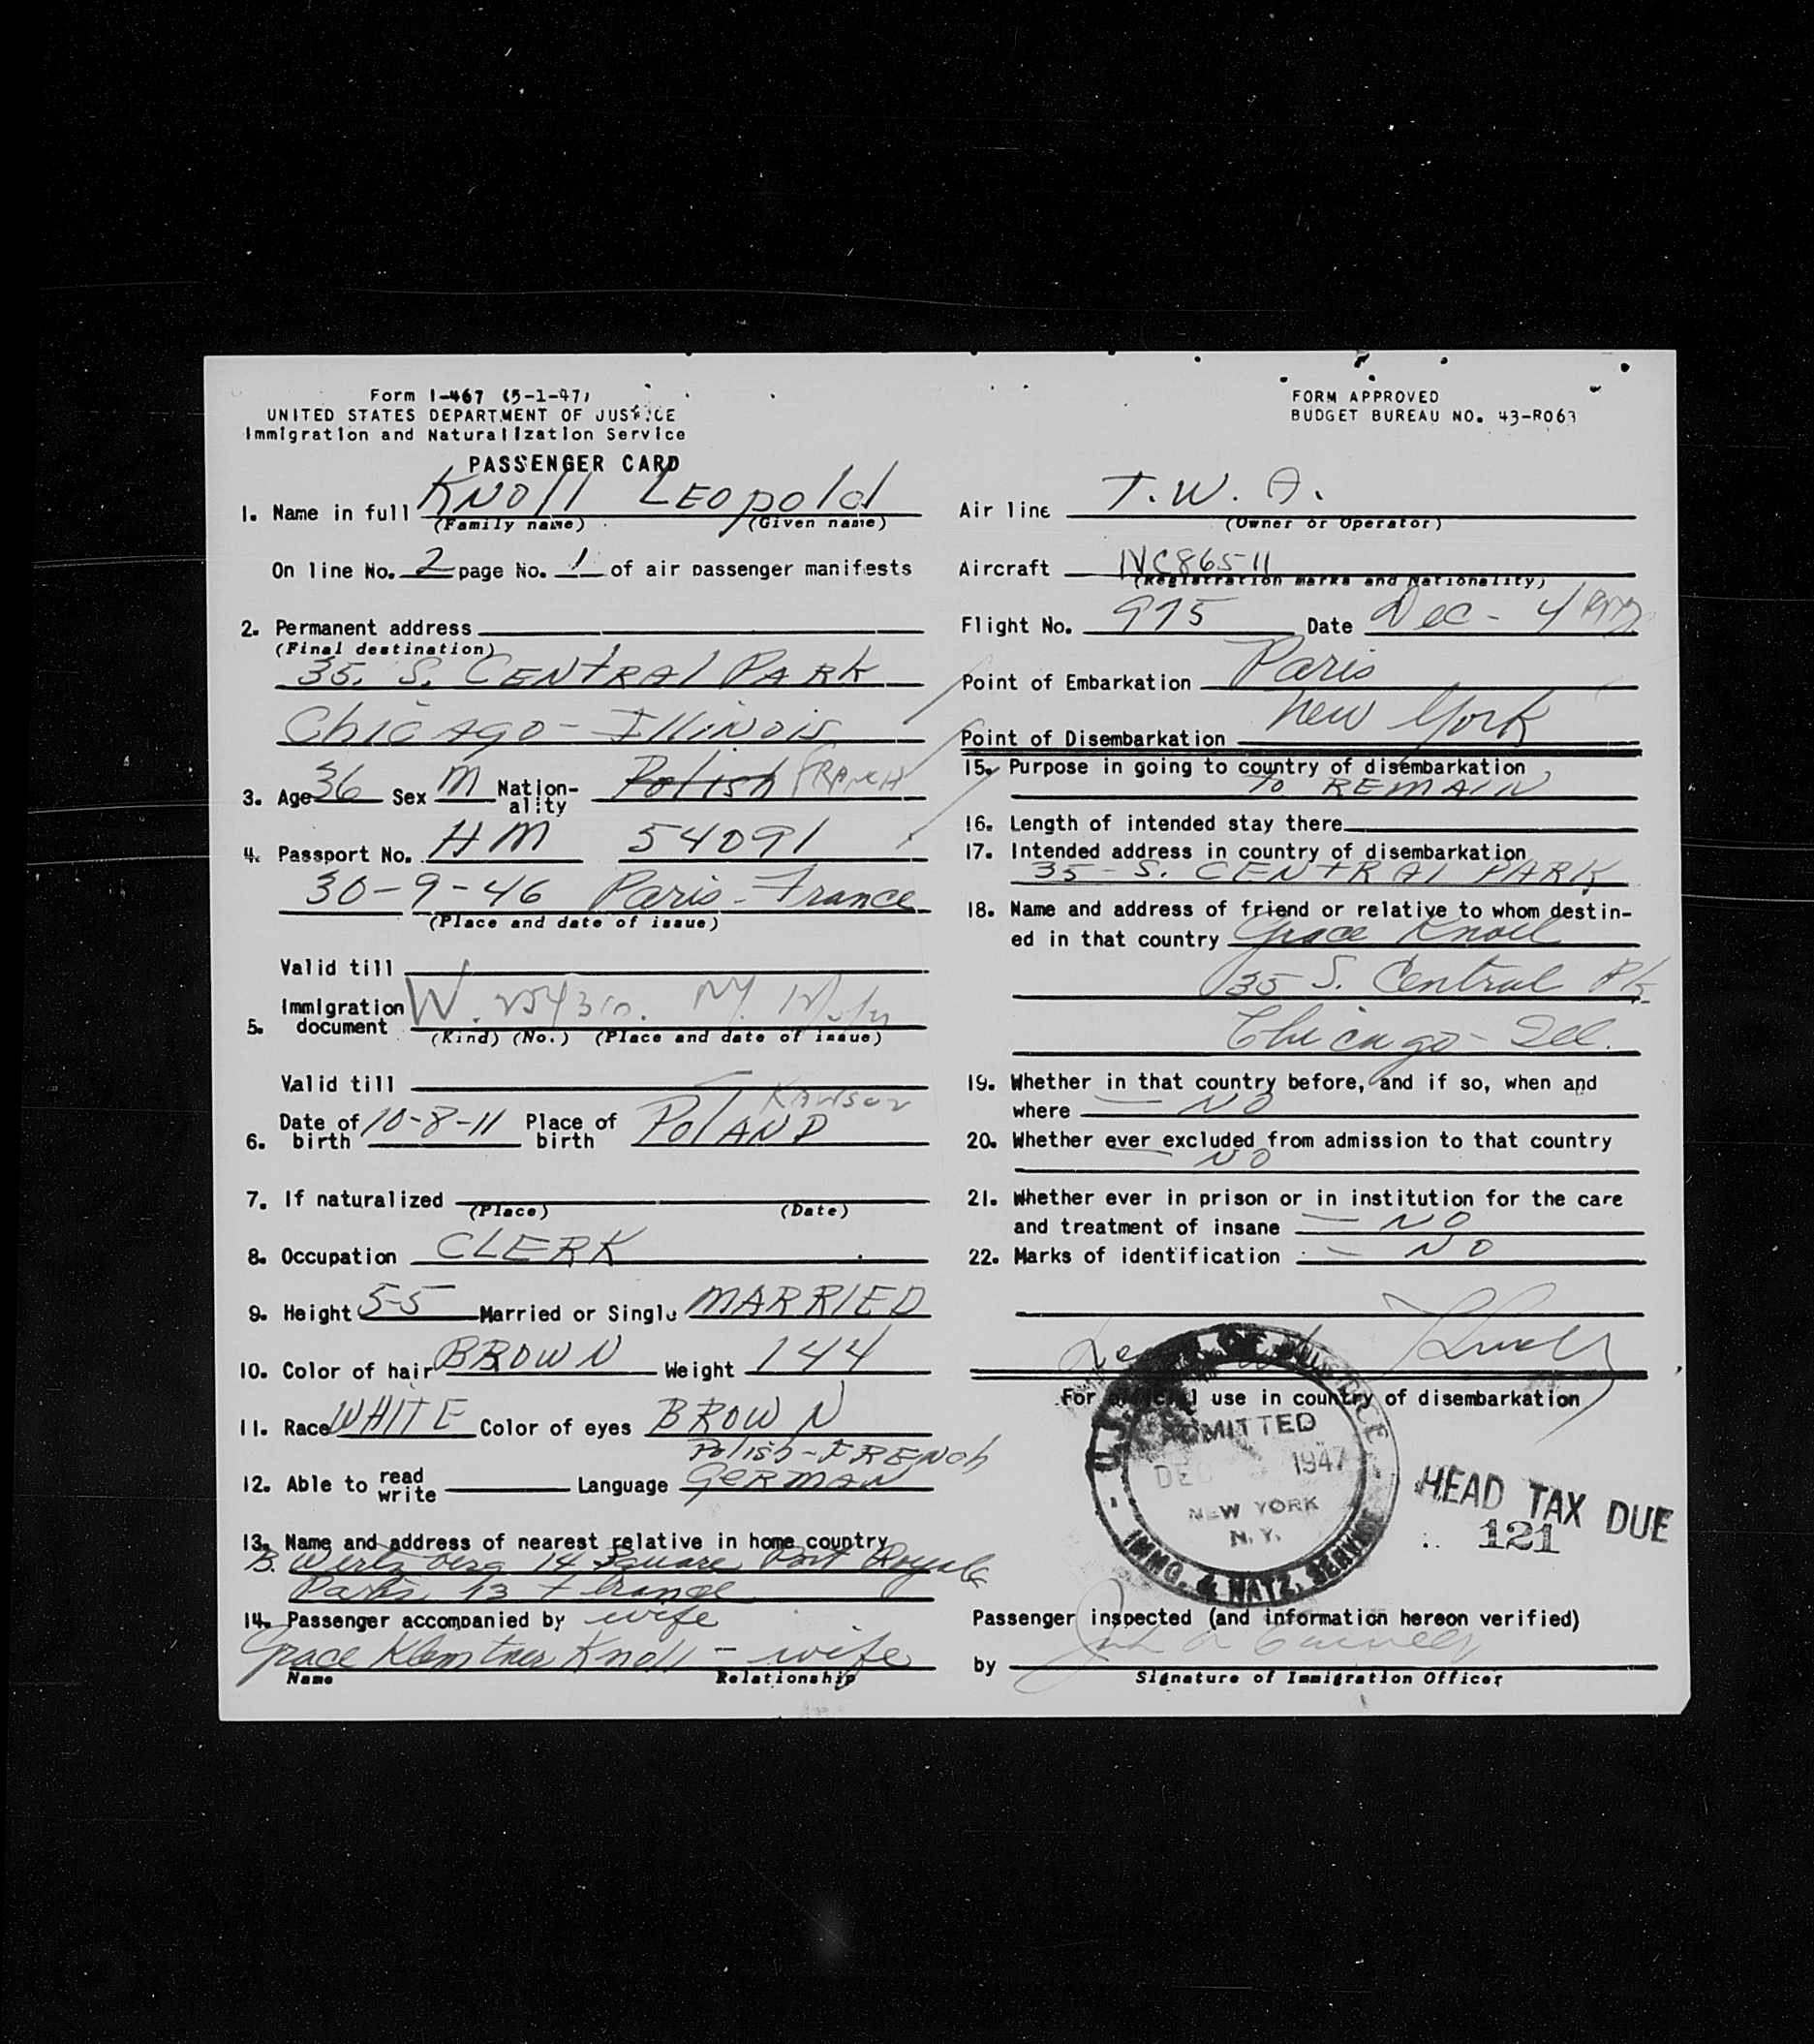 Form I-467 (5-1-47)
UNITED STATES DEPARTMENT OF JUSTICE
Immigration and Naturalization Service
PASSENGER CARD
FORM APPROVED
BUDGET BUREAU NO. 43-R063
1. Name in full KNOll LEOpold
(Family name) (Given name)
On line No. 2 page No. 1 of air passenger manifests
2. Permanent address
(Final destination)
35. S. CENTRAL PARK
Chicago - Illinois
3. Age 36 Sex M Nation-ality Polish
4. Passport No. HM 54091
30-9-46 Paris - France
(Place and date of issue)
Valid till
5. Immigration document W.
(Kind) (No.) (Place and date of issue)
Valid till
6. Date of birth 10-8-11 Place of birth PolAND
7. If naturalized
(Place) (Date)
8. Occupation CLERK
9. Height 5-5 Married or Single MARRIED
10. Color of hair BROWN Weight 144
11. Race WHITE Color of eyes BROWN
Polish - FRENCh
12. Able to read write Language GERMAN
13. Name and address of nearest relative in home country
B. 14 Square Port Royal
Paris 13 France
14. Passenger accompanied by wife
Grace Knoll - wife
Name Relationship
Air line T.W.A.
(Owner or Operator)
Aircraft NC86511
(Registration marks and Nationality)
Flight No. 975 Date Dec - 4
Point of Embarkation Paris
Point of Disembarkation New York
15. Purpose in going to country of disembarkation
To REMAIN
16. Length of intended stay there
17. Intended address in country of disembarkation
35 - S. CENTRAL PARK
18. Name and address of friend or relative to whom destin-
ed in that country Grace Knoll
35 S. Central Pk.
Chicago - Ill.
19. Whether in that country before, and if so, when and
where — NO
20. Whether ever excluded from admission to that country
— NO
21. Whether ever in prison or in institution for the care
and treatment of insane — NO
22. Marks of identification — NO
Knoll
For official use in country of disembarkation
U.S. DEPT. OF JUSTICE
ADMITTED
DEC 1947
NEW YORK
N.Y.
IMMG. & NATZ. SERVICE
HEAD TAX DUE
121
Passenger inspected (and information hereon verified)
by
Signature of Immigration Officer